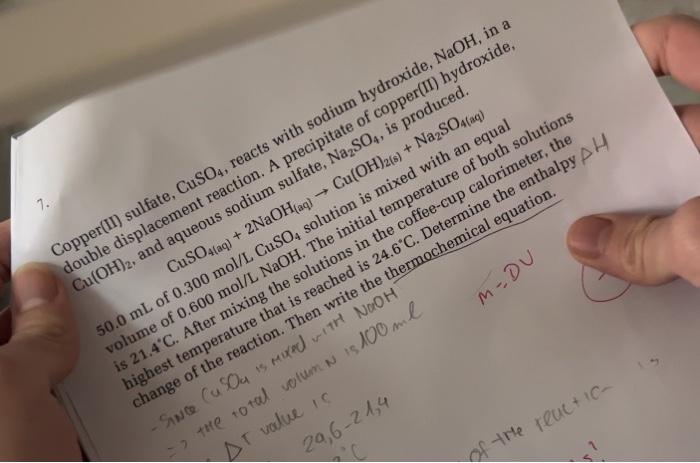 7.
Copper(II) sulfate, CuSO₄, reacts with sodium hydroxide, NaOH, in a
double displacement reaction. A precipitate of copper(II) hydroxide,
Cu(OH)₂, and aqueous sodium sulfate, Na₂SO₄, is produced.
CuSO₄(aq) + 2NaOH(aq) → Cu(OH)₂(s) + Na₂SO₄(aq)
50.0 mL of 0.300 mol/L CuSO₄ solution is mixed with an equal
volume of 0.600 mol/L NaOH. The initial temperature of both solutions
is 21.4°C. After mixing the solutions in the coffee-cup calorimeter, the
highest temperature that is reached is 24.6°C. Determine the enthalpy ΔH
change of the reaction. Then write the thermochemical equation.
- Since CuSO4 is mixed with NaOH
=> the total volum N is 100 ml
M=DV
ΔT value is
29,6-21,4
°C
of the reactic